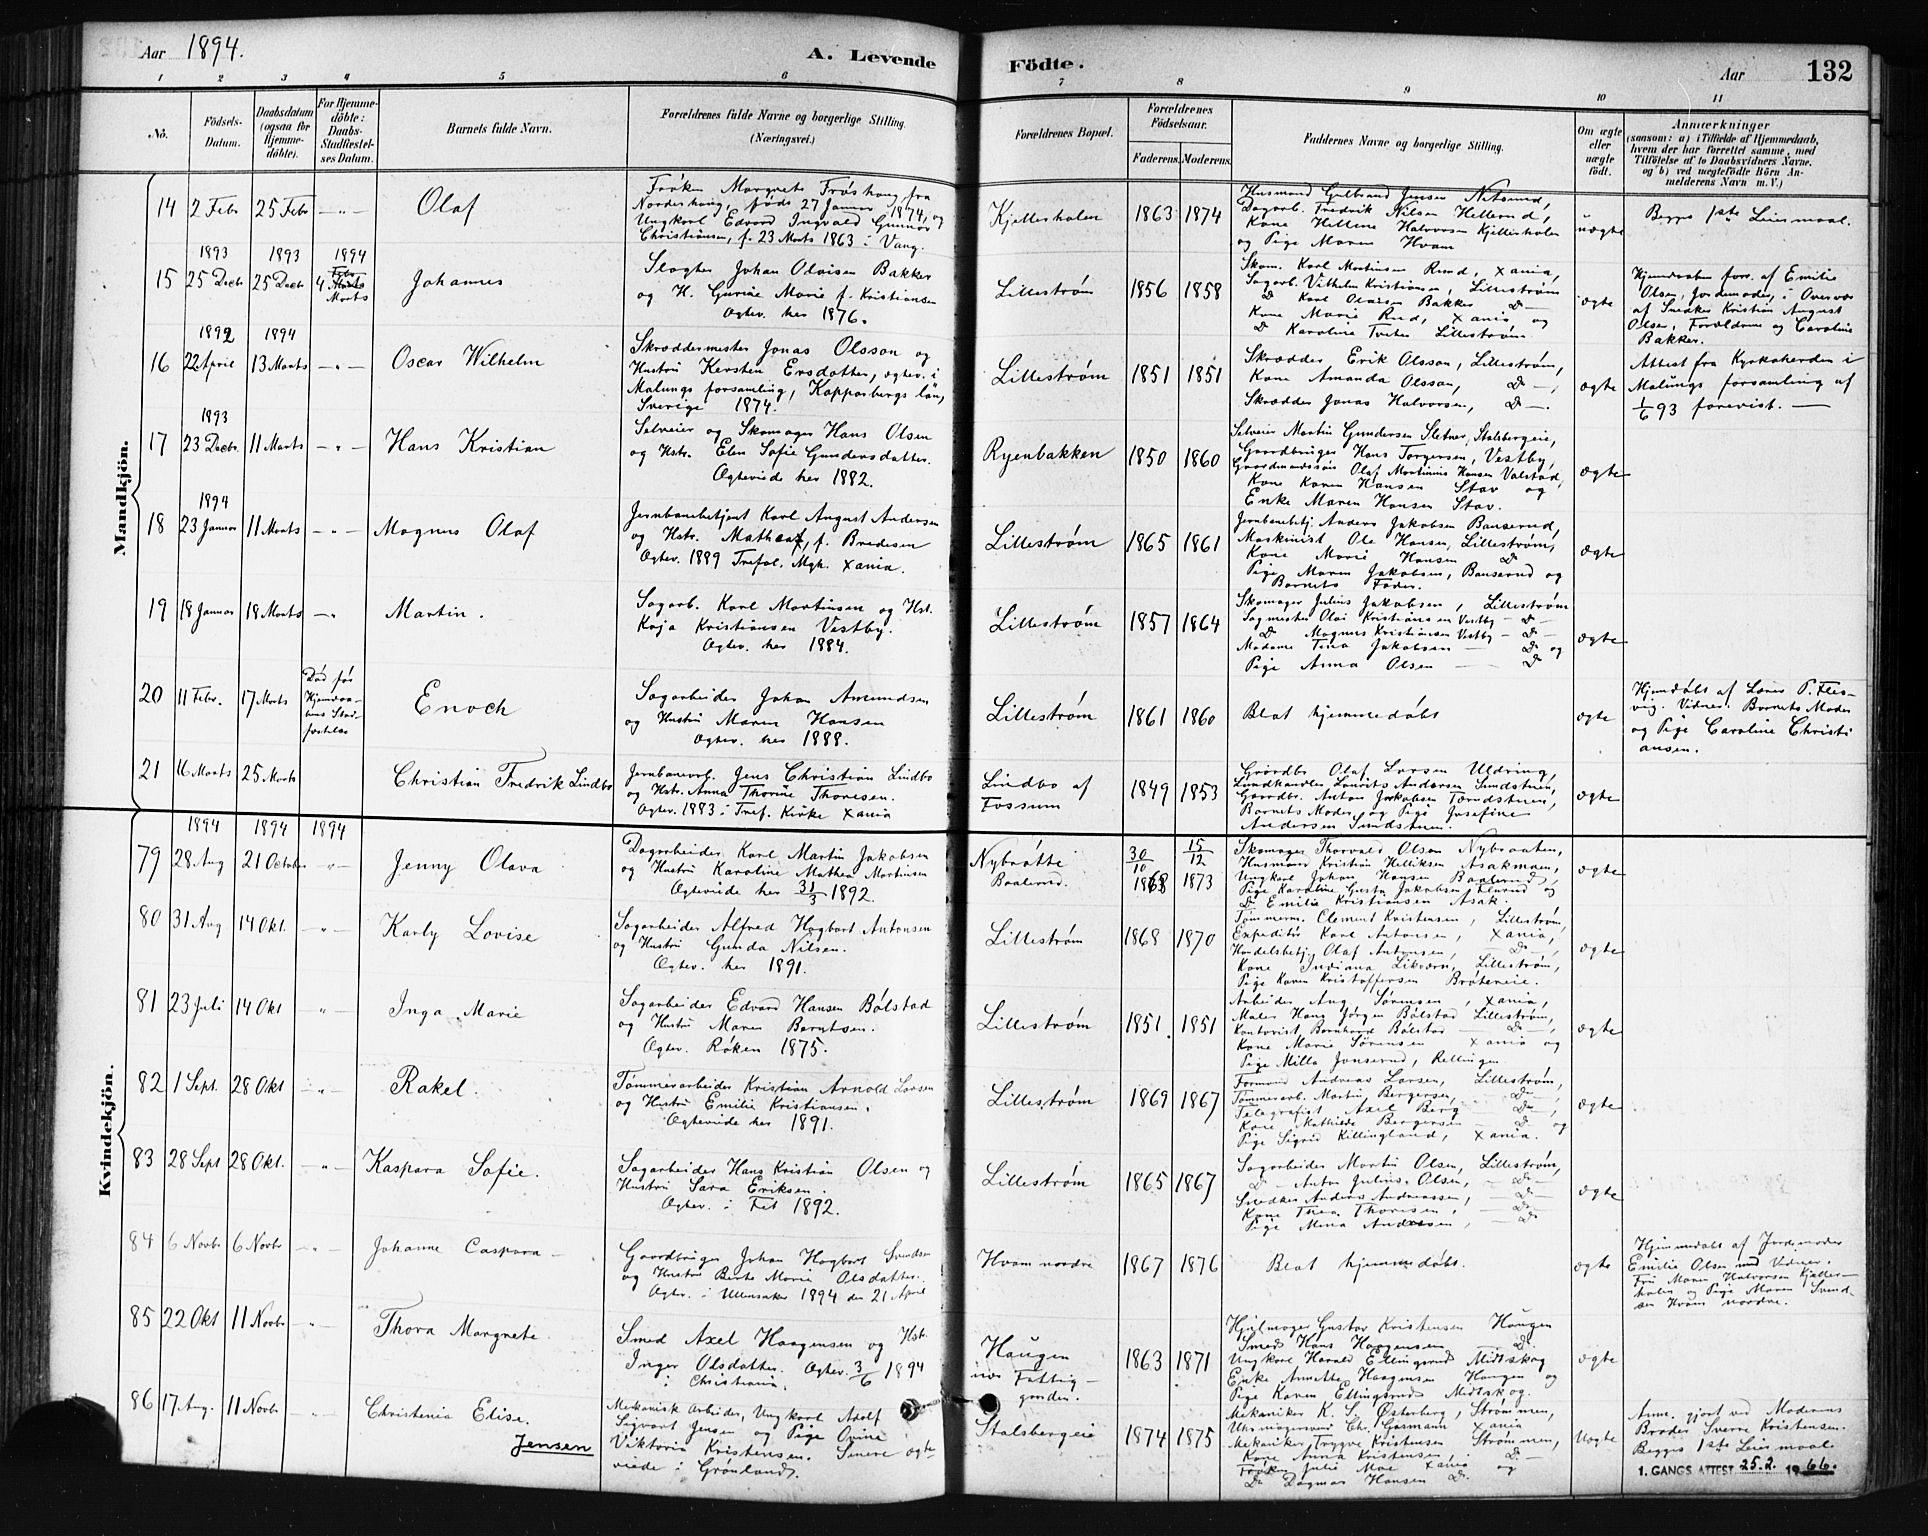 Aar 1894.
A. Levende Födte.
Aar
132
1 2 3 4 5 6 7 8 9 10 11
No.
Födsels-Datum.
Daabsdatum (ogsaa for Hjemme-döbte).
For Hjemme-döbte: Daabs-Stadfæstel-ses Datum.
Barnets fulde Navn.
Forældrenes fulde Navne og borgerlige Stilling. (Næringsvei.)
Forældrenes Bopæl.
Forældrenes Födselsaar.
Faderens. Moderens.
Faddernes Navne og borgerlige Stilling.
Om ægte eller uægte födt.
Anmærkninger
(saasom: a) i Tilfælde af Hjemmedaab, hvem der har forrettet samme, med Tilföielse af to Daabsvidners Navne. og b) ved uægtefödte Börn An-melderens Navn m. V.)
Mandkjön.
14 2 Febr 25 Febr — " — Olaf
Frøken Margrete Frøshaug fra
Norderhaug, føds 27 Januar 1874, og
Ungkarl Edvard Ingvald Gunnar
Christiansen, f. 23 Marts 1863 i Vang.
Kjellerholen 1863 1874
Husmand Gulbrand Jensen Nitsund,
Dagarb. Fredrik Nilsen Hellerud,
Kone Hellene Halvorsen Kjellerholen
og Pige Maren Hvam
uægte
Begges 1ste Leiermaal.
1893 1893 1894
15 25 Decbr 25 Decbr 4 Marts Johannes
Slagter Johan Olaisen Bakker
og H. Gurine Marie f. Kristiansen
Ægtev. her 1876.
Lillestrøm 1856 1858
Skom. Karl Martinsen Rud, Xania,
Sagarb. Vilhelm Kristiansen, Lillestrøm
Do Karl Olaisen Bakker Do
Kone Marie Rud, Xania og
Do Karoline Tvete Lillestrøm.
ægte
Hjemdaaben forr. af Emilie
Olsen, Jordemoder, i Overvær
af Snedker Kristian August
Olsen, Forældrene og Caroline
Bakker.
1892 1894
16 22 April 13 Marts — " — Oscar Wilhelm
Skræddermester Jonas Olsson og
Hustru Kersten Ersdotter, ægtev. i
Malungs forsamling, Kopparbergs län,
Sverige 1874.
Lillestrøm 1851 1851
Skrædder Erik Olsson, Lillestrøm,
Kone Amanda Olsson, Do —,
Skrædder Jonas Halvorsen, Do —.
ægte
Attest fra Kyrkoherden i
Malungs forsamling af
1/6 93 forevist. —
1893
17 23 Decbr. 11 Marts — " — Hans Kristian
Selveier og Skomager Hans Olsen
og Hstr. Elen Sofie Gundersdatter.
Ægteviede her 1882.
Ryenbakken 1850 1860
Selveier Martin Gundersen Sletner, Stalsbergeie,
Gaardbruger Hans Torgersen, Vestby,
Gaardmandssøn Olaf Martinius Hansen Valstad,
Kone Karen Hansen Stav og
Enke Maren Hansen Stav.
ægte
1894
18 23 Januar 11 Marts — " — Magnus Olaf
Jernbanebetjent Karl August Andersen
og Hstr. Mathea, f. Bredesen
Ægtev. 1889 Trefol. Mgh. Xania.
Lillestrøm 1865 1861
Jernbanebetj. Anders Jakobsen Banserud,
Maskinist Ole Hansen, Lillestrøm,
Kone Marie Hansen Do
Pige Maren Jakobsen, Banserud og
Barnets Fader.
ægte
19 18 Januar 18 Marts — " Martin.
Sagarb. Karl Martinsen og Hst.
Kaja Kristiansen Vestby.
Ægtev. her 1884.
Lillestrøm 1857 1864
Skomager Julius Jakobsen, Lillestrøm
Sagmester Olai Kristiansen Vestby — Do —
Do Magnus Kristiansen Vestby — Do —
Madame Tina Jakobsen — Do og
Pige Anna Olsen — Do
ægte
20 11 Febr. 17 Marts
Død før Hjemdaa-bens Stad-fæstelse
Enoch
Sagarbeider Johan Amundsen
og Hustru Maren Hansen
Ægtev. her 1888.
Lillestrøm 1861 1860
Blot hjemmedøbt
ægte
Hjemdøbt af Lærer P. Fles-
vig. Vidner: Barnets Moder
og Pige Caroline Christi
ansen.
21 16 Marts 25 Marts Christian Fredrik Lindbo
Jernbanearb. Jens Christian Lindbo
og Hst. Anna Thorine Thoresen.
Ægtev. 1883 i Tref. Kirke Xania
Lindbo af Fossum 1849 1853
Gaardbr. Olaf Larsen Uldring,
Landhandler Laurits Andersen Sundstuen,
Gaardbr. Anton Jakobsen Tærudstuen,
Barnets Moder og Pige Josefine
Andersen Sundstuen.
ægte
Kvindekjön.
1894 1894 1894
79 28 Aug 21 October " Jenny Olava
Dagarbeider Karl Martin Jakobsen
og Hustru Karoline Mathea Martinsen
Ægteviede her 31/3 1892.
Nybraatte Baalerud. 30/10 1868 15/12 1873
Skomager Thorvald Olsen Nybraaten,
Husmand Kristian Helliksen Asakmoen,
Ungkarl Johan Hansen Baalerud,
Pige Karoline Gusta Jakobsen Flærud og
Do Emilie Kristiansen Asak.
ægte
80 31 Aug 14 Okt. — " — Karly Lovise
Sagarbeider Alfred Hagbart Antonsen
og Hustru Gunda Nilsen.
Ægtev. her 1891.
Lillestrøm 1868 1870
Tømmerm. Clement Kristensen, Lillestrøm,
Expeditør Karl Antonsen, Xania,
Handelsbetj. Olaf Antonsen, — Do —,
Kone Indiana Likværn, Lillestrøm,
Pige Karen Kristoffersen Bråteneie.
ægte
81 23 Juli 14 Okt — " — Inga Marie
Sagarbeider Edvard Hansen Bølstad
og Hustru Maren Berntsen.
Ægtev. Røken 1875.
Lillestrøm 1851. 1851
Arbeider Aug Sørensen, Xania,
Maler Hans Jørgen Bølstad Lillestrøm,
Kontorist Bernhard Bølstad — Do —,
Kone Marie Sørensen Xania og
Pige Milla Jonserud, Rellingen
ægte
82 1 Sept. 28 Okt — " — Rakel.
Tømmerarbeider Kristian Arnold Larsen
og Hustru Emilie Kristiansen.
Ægteviede her 1891.
Lillestrøm 1869 1867
Formand Andreas Larsen, Lillestrøm,
Tømmerarb. Martin Bergersen, — Do —,
Telegrafist Axel Berg — Do —,
Kone Mathilde Bergersen — Do og
Pige Sigrid Killingland, Xania.
ægte
83 28 Sept 28 Okt. — " — Kaspara Sofie.
Sagarbeider Hans Kristian Olsen og
Hustru Sara Eriksen
Ægtev. i Fet 1892.
Lillestrøm 1865 1867
Sagarbeider Martin Olsen, Lillestrøm,
— Do — Anton Julius Olsen, — Do —
Snedker Anders Andreassen, — Do —
Kone Thea Thoresen, — Do —
Pige Mina Andersen, — Do
ægte
84 6 Novbr 6 Novbr — " — Johanne Caspara —
Gaardbruger Johan Hagbart Svendsen
og Hustru Berte Marie Olsdatter.
Ægtev. i Ullensaker 1894 den 21 April
Hvam nordre 1867 1876
Blot hjemmedøbt.
ægte
Hjemmedøbt af Jordemoder
Emilie Olsen med Vidner:
Fru Maren Halvorsen Kjeller-
holen og Pige Maren Svend-
sen Hvam nordre.
85 22 Okt 11 Novbr — " — Thora Margrete
Smed Axel Haagensen og Hst.
Inger Olsdatter. Ægtev. 3/6 1894
i Christiania.
Haugen ved Fattig-gaarden. 1863 1871
Hjulmager Gustav Kristensen Haugen
Smed Hans Haagensen Do
Ungkarl Harald Ellingsrud Midtskog
Enke Annette Haagensen Haugen og
Pige Karen Ellingsrud Midtskog.
ægte
86 17 Aug. 11 Novbr — " — Christenia Elise.
Jensen
Mekanisk Arbeider, Ungkarl Adolf
Sigvart Jensen og Pige Ovine
Viktoria Kristensen. Senere ægte-
viede i Grønland.
Stalsbergeie 1874 1875
Mekaniker K. S. Østerberg, Strømmen,
Uhrmagersvend Chr. Gasmann Xania
Mekaniker Trygve Kristensen Strømmen,
Kone Anna Kristensen Do —
Frøken Julie Moe Xania og
Do Dagmar Hansen Do
Uægte
Anm. gjort ved Moderens
Broder Sverre Kristensen.
Begges 1ste Leiermaal.
1. GANGS ATTEST 25.2. 1966.